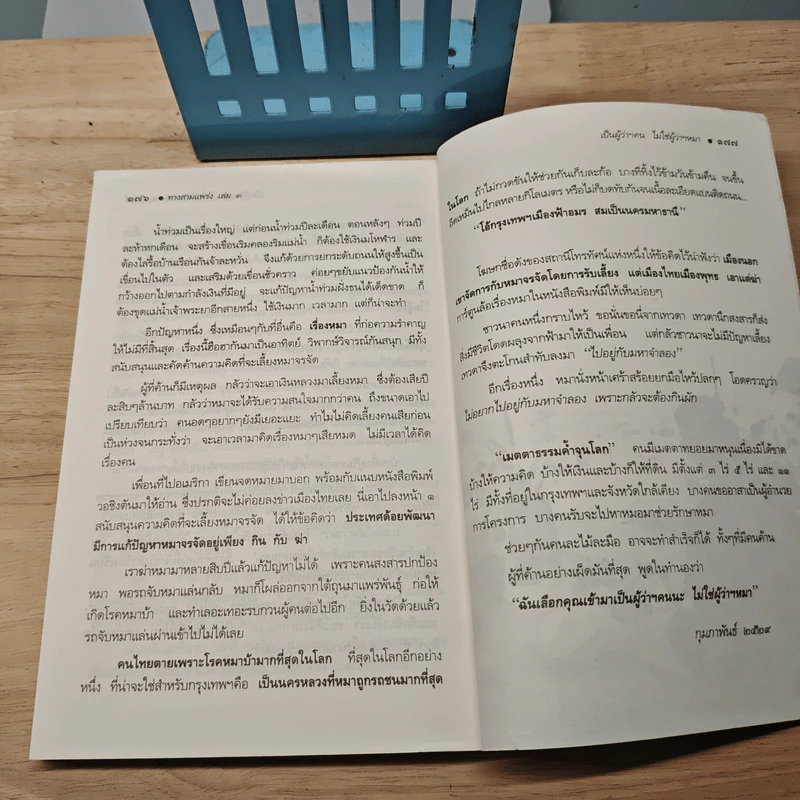 ๑๗๖ ● ทางสามแพร่ง เล่ม ๓
น้ำท่วมเป็นเรื่องใหญ่ แต่ก่อนน้ำท่วมปีละเดือน ตอนหลังๆ ท่วมปี
ละห้าหกเดือน จะสร้างเขื่อนริมคลองริมแม่น้ำ ก็ต้องใช้เงินมโหฬาร และ
ต้องไล่รื้อบ้านเรือนกันจำละหวั่น จึงแก้ด้วยการยกระดับถนนให้สูงขึ้นเป็น
เขื่อนไปในตัว และเสริมด้วยเขื่อนชั่วคราว ค่อยๆขยับแนวป้องกันน้ำให้
กว้างออกไปตามกำลังเงินที่มีอยู่ จะแก้ปัญหาน้ำท่วมฝั่งธนได้เด็ดขาด ก็
ต้องขุดแม่น้ำเจ้าพระยาอีกสายหนึ่ง ใช้เงินมาก เวลามาก แต่ก็น่าจะทำ
อีกปัญหาหนึ่ง ซึ่งเหมือนๆกับที่อื่นคือ เรื่องหมา ที่ก่อความรำคาญ
ให้ไม่มีที่สิ้นสุด เรื่องนี้ฮือฮากันมาเป็นอาทิตย์ วิพากษ์วิจารณ์กันสนุก มีทั้ง
สนับสนุนและคัดค้านความคิดที่จะเลี้ยงหมาจรจัด
ผู้ที่ค้านก็มีเหตุผล กลัวว่าจะเอาเงินหลวงมาเลี้ยงหมา ซึ่งต้องเสียปี
ละสิบๆล้านบาท กลัวว่าหมาจะได้รับความสนใจมากกว่าคน ถึงขนาดเอาไป
เปรียบเทียบว่า คนอดๆอยากๆยังมีเยอะแยะ ทำไมไม่คิดเลี้ยงคนเสียก่อน
เป็นห่วงจนกระทั่งว่า จะเอาเวลามาคิดเรื่องหมาๆเสียหมด ไม่มีเวลาได้คิด
เรื่องคน
เพื่อนที่ไปอเมริกา เขียนจดหมายมาบอก พร้อมกับแนบหนังสือพิมพ์
วอชิงตันมาให้อ่าน ซึ่งปรกติจะไม่ค่อยลงข่าวเมืองไทยเลย นี่เอาไปลงหน้า ๑
สนับสนุนความคิดที่จะเลี้ยงหมาจรจัด ได้ให้ข้อคิดว่า ประเทศด้อยพัฒนา
มีการแก้ปัญหาหมาจรจัดอยู่เพียง กิน กับ ฆ่า
เราฆ่าหมามาหลายสิบปีแล้วแก้ปัญหาไม่ได้ เพราะคนสงสารปกป้อง
หมา พอรถจับหมาแล่นกลับ หมาก็โผล่ออกจากใต้ถุนมาแพร่พันธุ์ ก่อให้
เกิดโรคหมาบ้า และทำเลอะเทอะรบกวนผู้คนต่อไปอีก ยิ่งในวัดด้วยแล้ว
รถจับหมาแล่นผ่านเข้าไปไม่ได้เลย
คนไทยตายเพราะโรคหมาบ้ามากที่สุดในโลก ที่สุดในโลกอีกอย่าง
หนึ่ง ที่น่าจะใช่สำหรับกรุงเทพฯคือ เป็นนครหลวงที่หมาถูกรถชนมากที่สุด
เป็นผู้ว่าฯคน ไม่ใช่ผู้ว่าฯหมา ● ๑๗๗
ในโลก ถ้าไม่กวดขันให้ช่วยกันเก็บละก้อ บางทีทิ้งไว้ข้ามวันข้ามคืน จนขึ้น
อืดเหม็นไปไกลหลายกิโลเมตร หรือไม่ก็บดทับกันจนเนื้อละเอียดแบนติดถนน...
“โอ้กรุงเทพฯเมืองฟ้าอมร สมเป็นนครมหาธานี”
โฆษกชื่อดังของสถานีโทรทัศน์แห่งหนึ่งให้ข้อคิดไว้น่าฟังว่า เมืองนอก
เขาจัดการกับหมาจรจัดโดยการรับเลี้ยง แต่เมืองไทยเมืองพุทธ เอาแต่ฆ่า
การ์ตูนล้อเรื่องหมาในหนังสือพิมพ์มีให้เห็นบ่อยๆ
ชาวนาคนหนึ่งกราบไหว้ ขอนั่นขอนี่จากเทวดา เทวดานึกสงสารก็ส่ง
สิ่งมีชีวิตโดดผลุงจากฟ้ามาให้เป็นเพื่อน แต่กลัวชาวนาจะไม่มีปัญหาเลี้ยง
เทวดาจึงตะโกนสำทับลงมา “ไปอยู่กับมหาจำลอง”
อีกเรื่องหนึ่ง หมานั่งหน้าเศร้าสร้อยยกมือไหว้ปลกๆ โอดครวญว่า
ไม่อยากไปอยู่กับมหาจำลอง เพราะกลัวจะต้องกินผัก
“เมตตาธรรมค้ำจุนโลก” คนมีเมตตาทยอยมาหนุนเนื่องมิได้ขาด
บ้างให้ความคิด บ้างให้เงินและบ้างก็ให้ที่ดิน มีตั้งแต่ ๓ ไร่ ๕ ไร่ และ ๑๑
ไร่ มีทั้งที่อยู่ในกรุงเทพฯและจังหวัดใกล้เคียง บางคนขออาสาเป็นผู้อำนวย
การโครงการ บางคนรับจะไปหาหมอมาช่วยรักษาหมา
ช่วยๆกันคนละไม้ละมือ อาจจะทำสำเร็จก็ได้ ทั้งๆที่มีคนค้าน
ผู้ที่ค้านอย่างเผ็ดมันที่สุด พูดในทำนองว่า
“ฉันเลือกคุณเข้ามาเป็นผู้ว่าฯคนนะ ไม่ใช่ผู้ว่าฯหมา”
กุมภาพันธ์ ๒๕๒๙